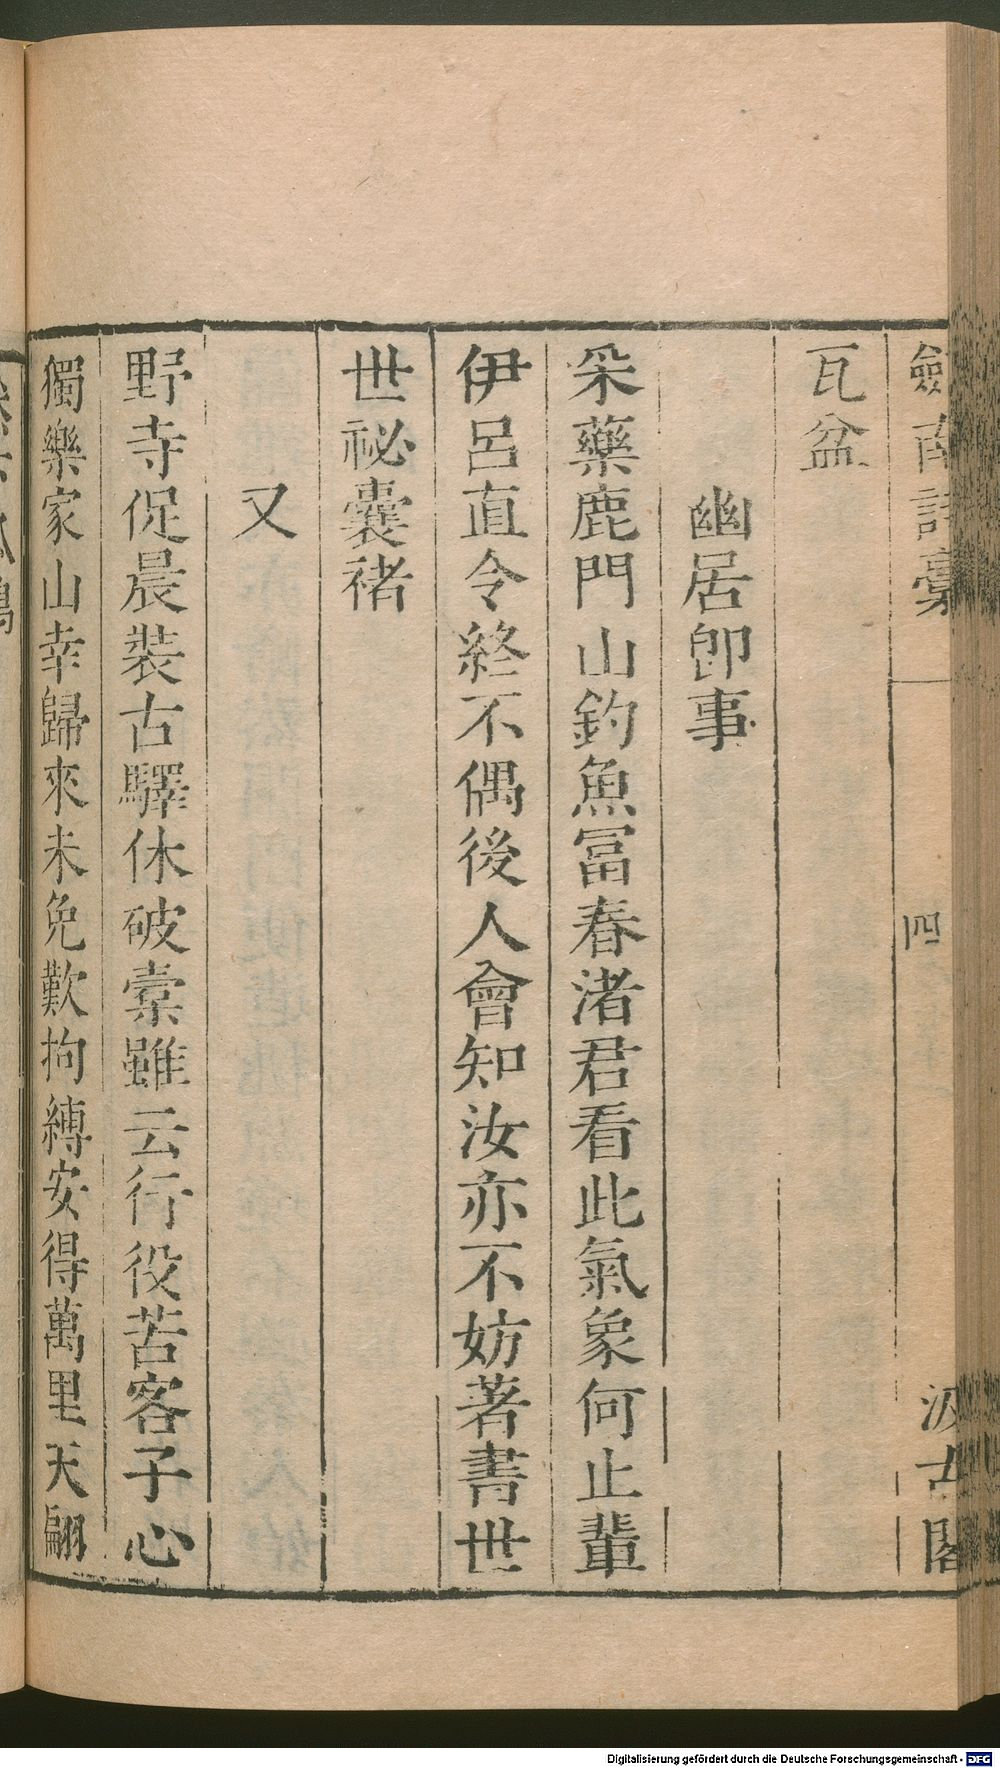 劒南詩稾
四
汲古閣
瓦盆
幽居卽事
采藥鹿門山釣魚冨春渚君看此氣象何止輩
伊呂直令終不偶後人會知汝亦不妨著書世
世祕囊褚
又
野寺促晨裝古驛休破槖雖云行役苦客子心
獨樂家山幸歸來未免歎拘縛安得萬里天翩
Digitalisierung gefördert durch die Deutsche Forschungsgemeinschaft - DFG